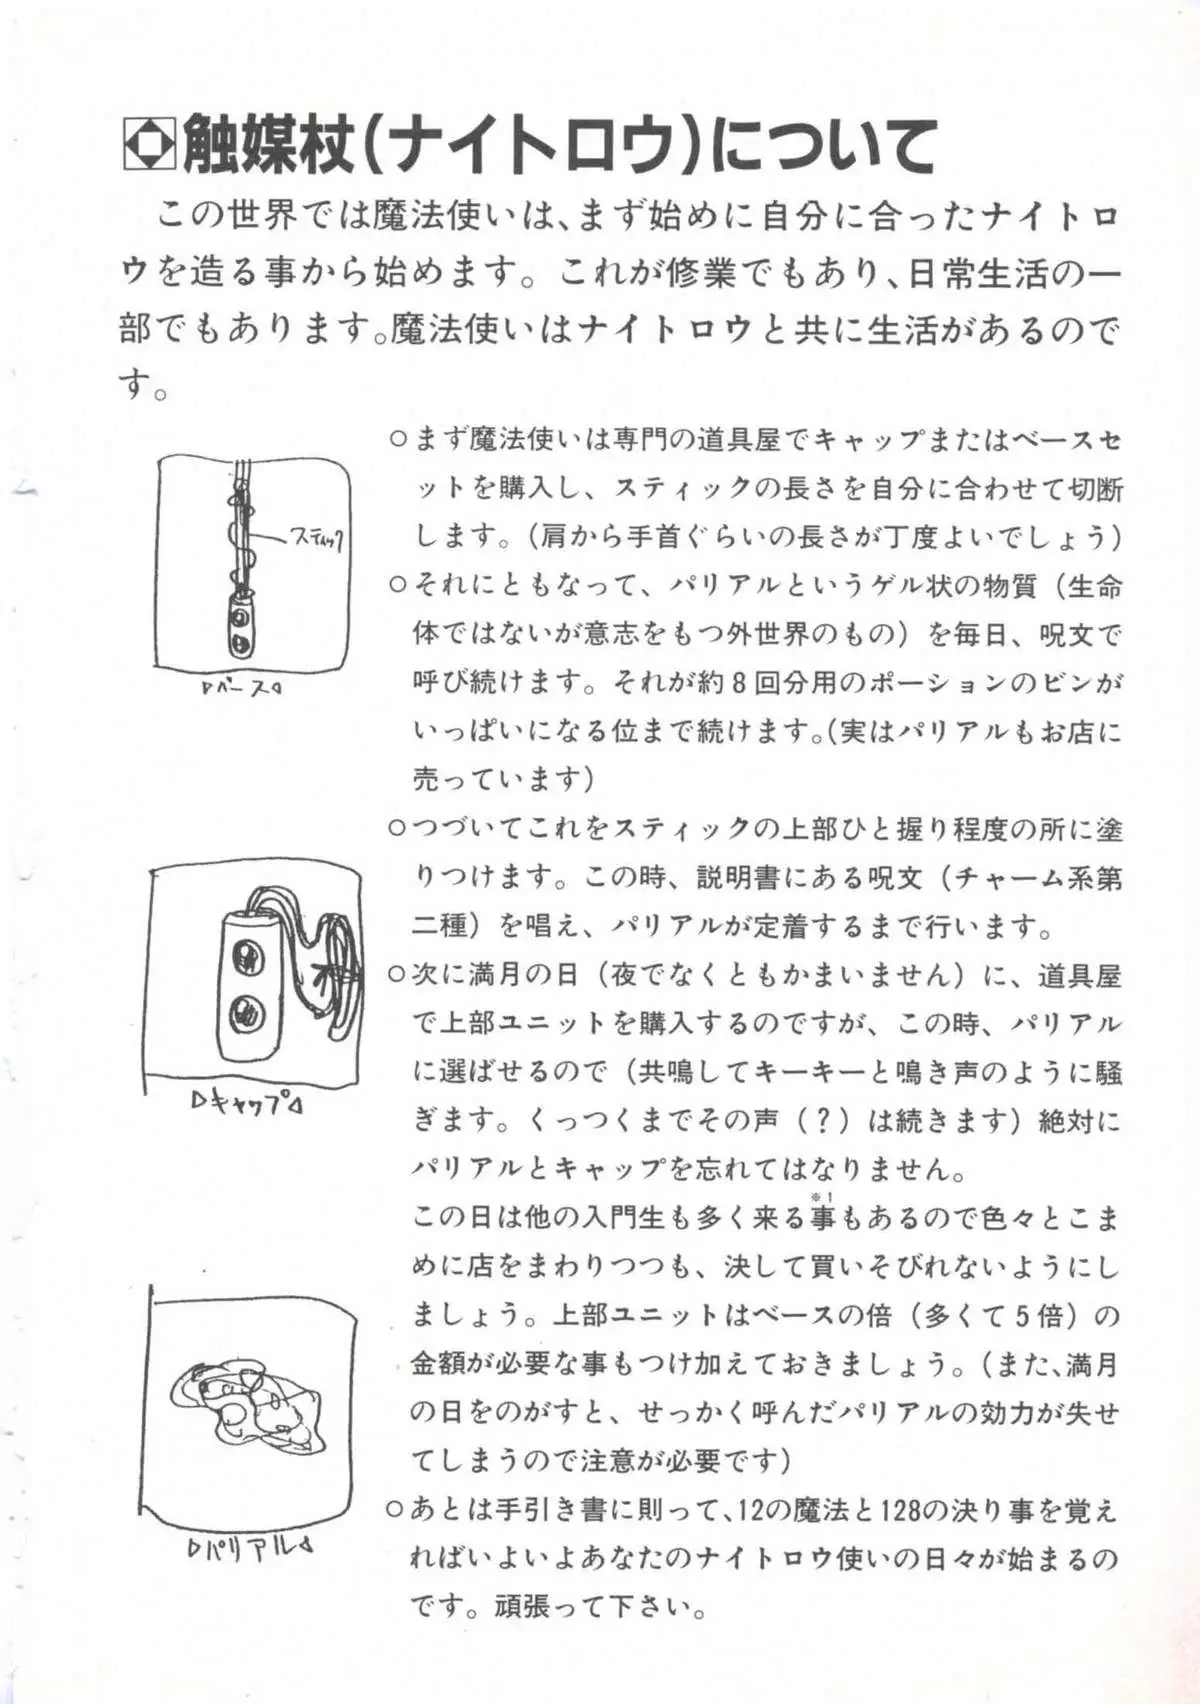 触媒杖(ナイトロウ)について
この世界では魔法使いは、まず始めに自分に合ったナイトロ
ウを造る事から始めます。これが修業でもあり、日常生活の一
部でもあります。魔法使いはナイトロウと共に生活があるので
す。
○まず魔法使いは専門の道具屋でキャップまたはベースセ
ットを購入し、スティックの長さを自分に合わせて切断
します。(肩から手首ぐらいの長さが丁度よいでしょう)
スティック
▷ベース◁
○それにともなって、パリアルというゲル状の物質(生命
体ではないが意志をもつ外世界のもの)を毎日、呪文で
呼び続けます。それが約8回分用のポーションのビンが
いっぱいになる位まで続けます。(実はパリアルもお店に
売っています)
○つづいてこれをスティックの上部ひと握り程度の所に塗
りつけます。この時、説明書にある呪文(チャーム系第
二種)を唱え、パリアルが定着するまで行います。
○次に満月の日(夜でなくともかまいません)に、道具屋
で上部ユニットを購入するのですが、この時、パリアル
に選ばせるので(共鳴してキーキーと鳴き声のように騒
ぎます。くっつくまでその声(?)は続きます)絶対に
パリアルとキャップを忘れてはなりません。
▷キャップ◁
※1
この日は他の入門生も多く来る事もあるので色々とこま
めに店をまわりつつも、決して買いそびれないようにし
ましょう。上部ユニットはベースの倍(多くて5倍)の
金額が必要な事もつけ加えておきましょう。(また、満月
の日をのがすと、せっかく呼んだパリアルの効力が失せ
てしまうので注意が必要です)
▷パリアル◁
○あとは手引き書に則って、12の魔法と128の決り事を覚え
ればいよいよあなたのナイトロウ使いの日々が始まるの
です。頑張って下さい。